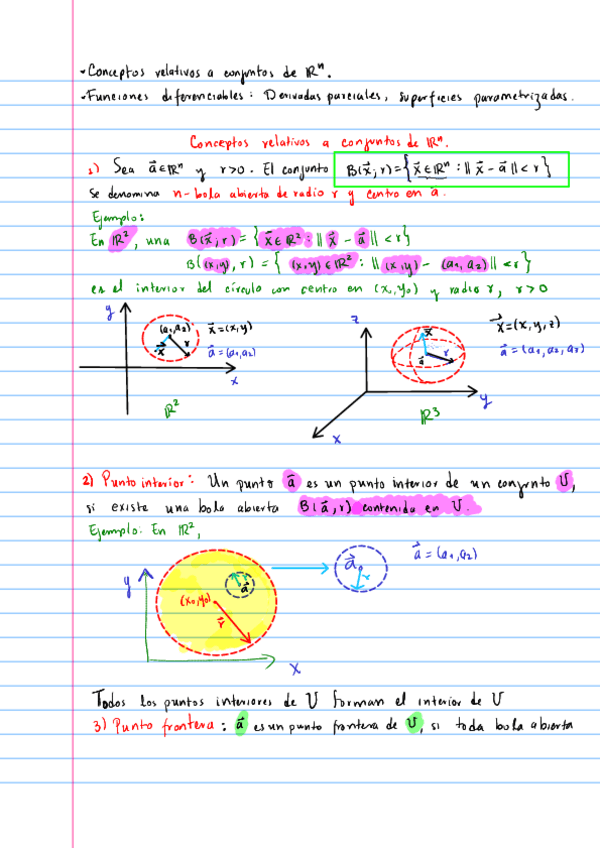 • Conceptos relativos a conjuntos de ℝⁿ.
• Funciones diferenciables: Derivadas parciales, superficies parametrizadas.
Conceptos relativos a conjuntos de ℝⁿ.
1) Sea a⃗∈ℝⁿ y r>0. El conjunto B(x⃗; r)={x⃗∈ℝⁿ : ‖x⃗ - a⃗‖<r}
se denomina n-bola abierta de radio r y centro en a.
Ejemplo:
En ℝ², una B(x⃗; r) = {x⃗∈ℝ² : ‖x⃗ - a⃗‖<r}
B((x,y), r) = {(x,y)∈ℝ² : ‖(x,y) - (a₁, a₂)‖<r}
es el interior del círculo con centro en (x,y₀) y radio r, r>0
y
(a₁,a₂)
x⃗
r
x⃗=(x,y)
a⃗=(a₁,a₂)
x
ℝ²
z
x⃗
a⃗
r
x⃗=(x,y,z)
a⃗=(a₁,a₂,a₃)
y
x
ℝ³
2) Punto interior: Un punto a⃗ es un punto interior de un conjunto U,
si existe una bola abierta B(a⃗,r) contenida en U.
Ejemplo: En ℝ²,
y
(x₀,y₀)
r⃗
r
a⃗
a⃗
r
a⃗=(a₁,a₂)
x
Todos los puntos interiores de U forman el interior de U
3) Punto frontera: a⃗ es un punto frontera de U, si toda bola abierta